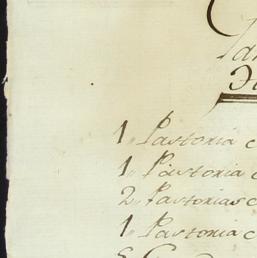 1,, Pastoria c
1,, Pastoria c
2,, Pastorias c
1,, Pastoria c